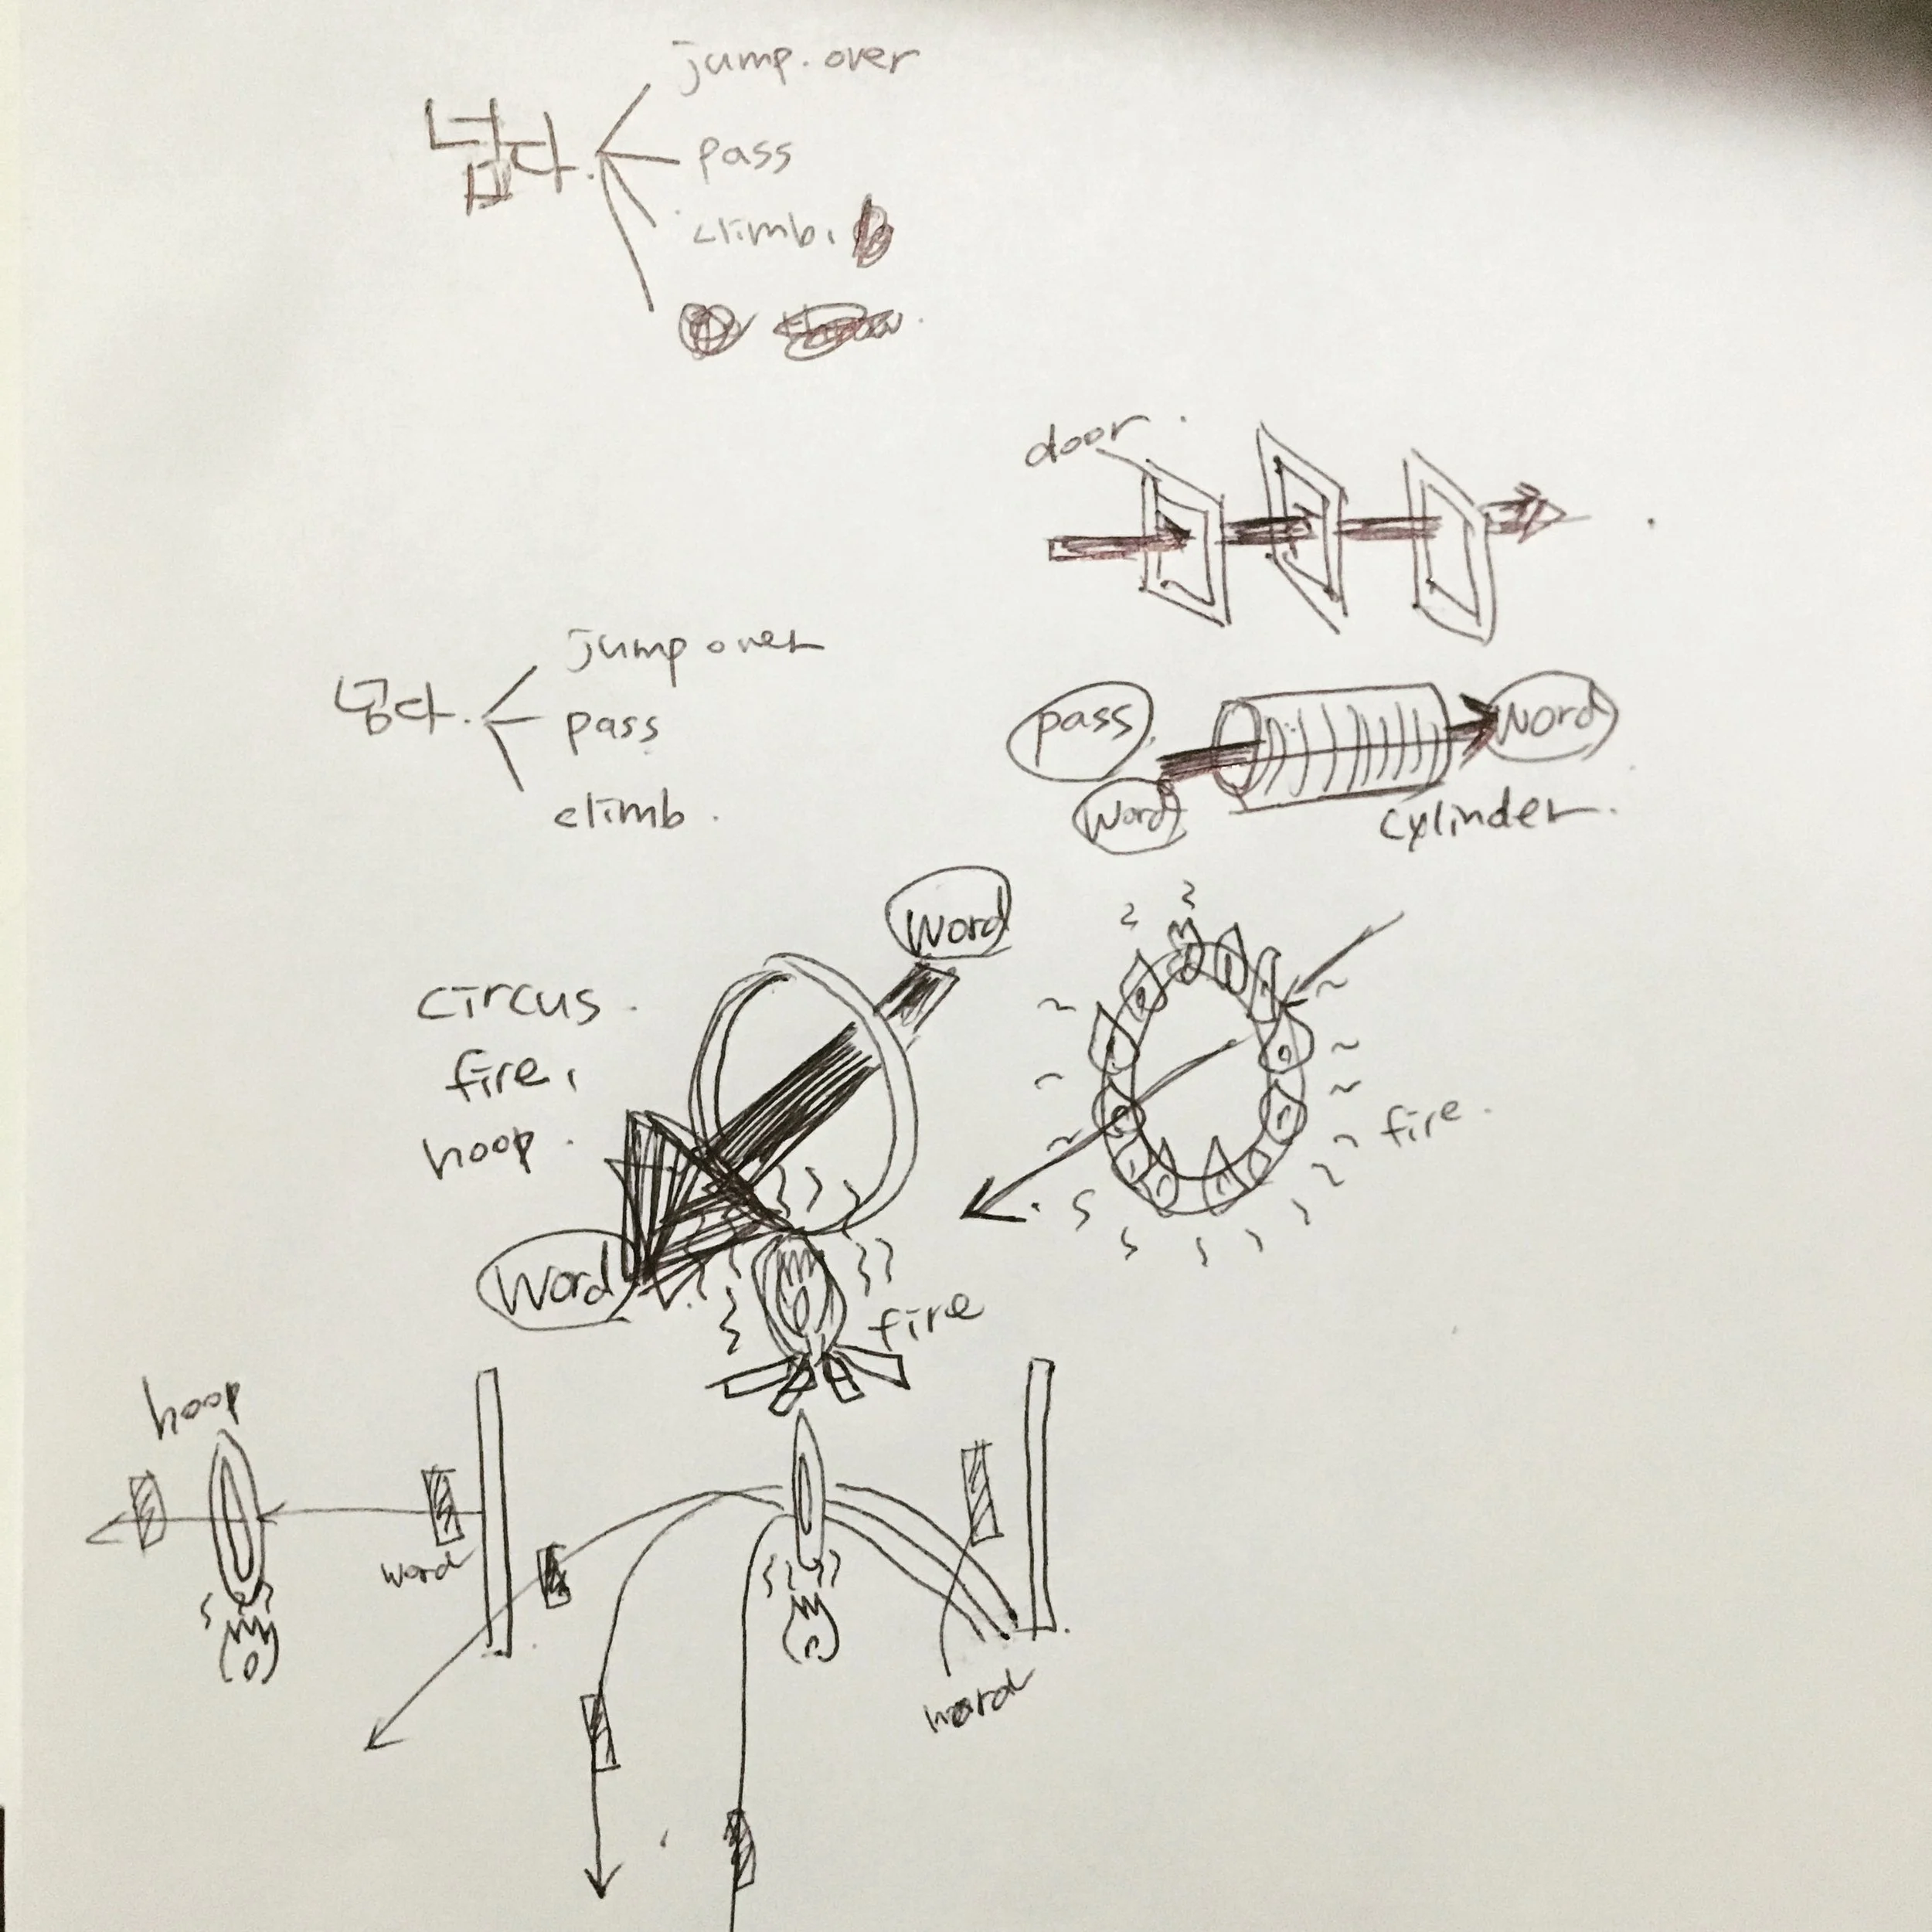 jump. over
넘다.
pass
climb.
door.
jump over
넘다.
pass
climb.
pass
word
word
cylinder.
word
circus.
fire,
hoop.
fire.
word
fire
hoop
word
word